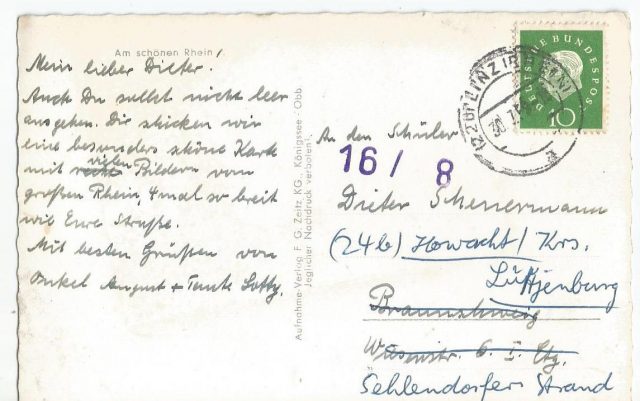 Am schönen Rhein
Mein lieber Dieter!
Auch Du sollst nicht leer
ausgehen. Dir schicken wir
eine besonders schöne Karte
mit vielen Bildern vom
großen Rhein, 4mal so breit
wie Eure Straße.
Mit besten Grüßen von
Onkel August + Tante Lotty.
Aufnahme-Verlag F. G. Zeitz KG., Königssee-Obb.
Jeglicher Nachdruck verboten!
DEUTSCHE BUNDESPOST
10
An den Schüler
16/8
Dieter Scheuermann
(24b) Howacht/Krs.
Lüttjenburg
Braunschweig
Wiesenstr. 6. I. Etg.
Sehlendorfer Strand